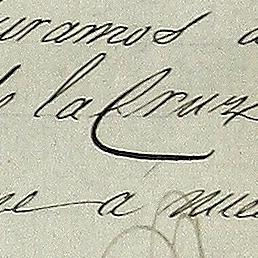 uramos a
de la Cruz
ne a nue